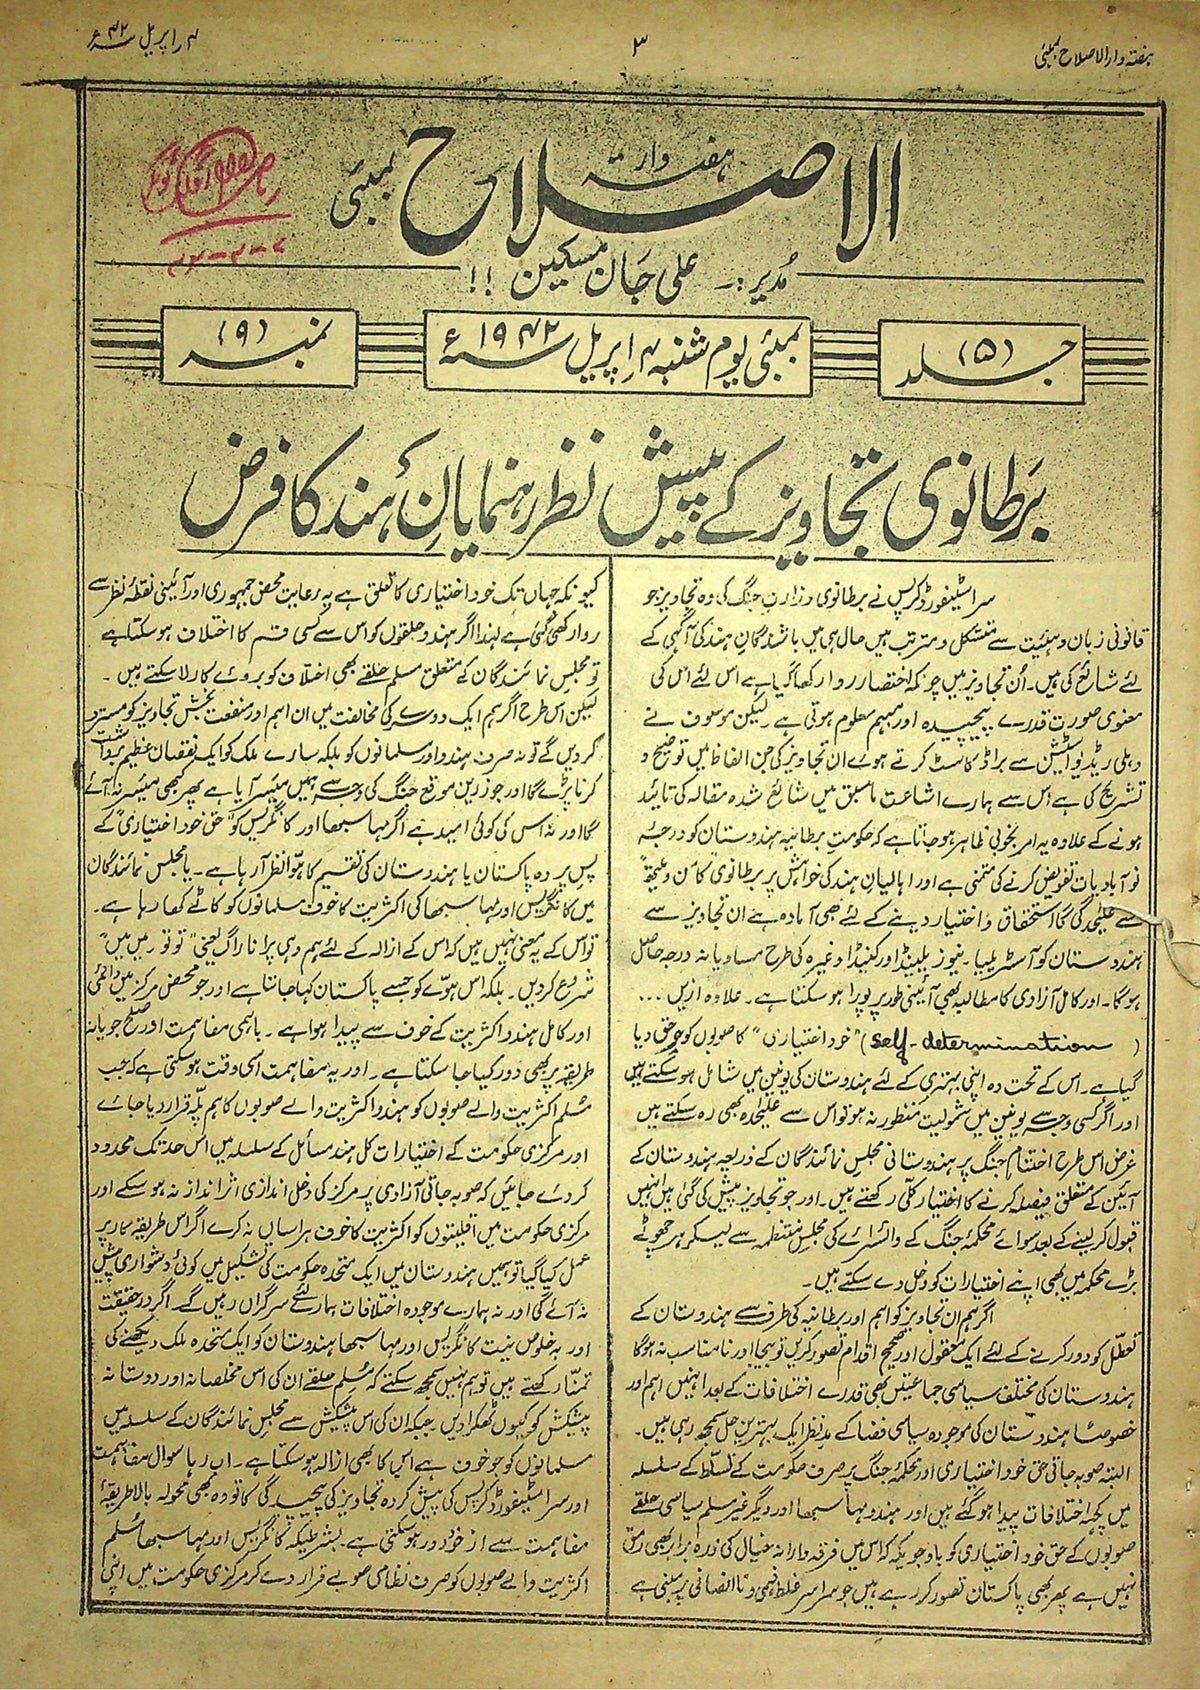 ہفتہ وار الاصلاح بمبئی
۳
۴ر اپریل ۴۲ء
ہفتہ وار
الاصلاح
بمبئی
مُدیر :۔ علی جان مسکین !!
جلد (۵)
بمبئی یوم شنبہ ۴ اپریل ۱۹۴۲ء
نمبر (۹)
برطانوی تجاویز کے پیش نظر رہنمایانِ ہند کا فرض
سر اسٹیفورڈ کرپس نے برطانوی وزارت جنگ کی وہ تجاویز جو
قانونی زبان و ہیئیت سے متشکل و مترتب ہیں حال ہی میں باشندگان ہند کی آگہی کے
لئے شائع کی ہیں۔ اُن تجاویز میں چونکہ اختصار روا رکھا گیا ہے اس لئے اس کی
معنوی صورت قدرے پیچیدہ اور مبہم معلوم ہوتی ہے لیکن موصوف نے
دہلی ریڈیو اسٹیشن سے براڈ کاسٹ کرتے ہوے ان تجاویز کی جن الفاظ میں توضیح و
تشریح کی ہے اس سے ہمارے اشاعت ماسبق میں شائع شدہ مقالہ کی تائید
ہونے کے علاوہ یہ امر بخوبی ظاہر ہو جاتا ہے کہ حکومت برطانیہ ہندوستان کو درجہ
نو آبادیات تفویض کرنے کی متمنی ہے اور اہالیان ہند کی خواہش پر برطانوی کامن ویلتھ
سے علیحدگی کا استحقاق و اختیار دینے کے لئے بھی آمادہ ہے ان تجاویز سے
ہندوستان کو آسٹریلیا۔ نیوزیلینڈ اور کنیڈا وغیرہ کی طرح مساویانہ درجہ حاصل
ہوگا۔ اور کامل آزادی کا مطالبہ بھی آئینی طور پر پورا ہو سکتا ہے۔ علاوہ ازیں ...
(Self-determination) "خود اختیاری" کا صوبوں کو جو حق دیا
گیا ہے۔ اس کے تحت وہ اپنی بہتری کے لئے ہندوستان کی یونین میں شامل ہو سکتے ہیں
اور اگر کسی وجہ سے یونین میں شمولیت منظور نہ ہو تو اس سے علیحدہ بھی رہ سکتے ہیں
غرض اس طرح اختتام جنگ پر ہندوستانی مجلس نمائندگان کے ذریعہ ہندوستان کے
آئین کے متعلق فیصلہ کرنے کا اختیار کلّی رکھتے ہیں۔ اور جو تجاویز پیش کی گئی ہیں انہیں
قبول کر لینے کے بعد سوائے محکمۂ جنگ کے وائسراے کی مجلس منتظمہ سے لیکر ہر چھوٹے
بڑے محکمہ میں بھی اپنے اختیارات کو دخل دے سکتے ہیں۔
اگر ہم ان تجاویز کو اہم اور برطانیہ کی طرف سے ہندوستان کے
تعطل کو دور کرنے کے لئے ایک معقول اور صحیح اقدام تصور کریں تو بیجا اور نامناسب نہ ہوگا
ہندوستان کی مختلف سیاسی جماعتیں بھی قدرے اختلافات کے بعد انہیں اہم اور
خصوصاً ہندوستان کی موجودہ سیاسی فضا کے مدنظر ایک بہترین حل سمجھ رہی ہیں۔
البتہ صوبہ جاتی حق خود اختیاری اور محکمۂ جنگ پر صرف حکومت کے تسلّط کے سلسلہ
میں کچھ اختلافات پیدا ہو گئے ہیں اور ہندو مہاسبھا اور دیگر غیر مسلم سیاسی حلقے
صوبوں کے حق خود اختیاری کو باوجودیکہ کہ اس میں فرقہ وارانہ خیال کی ذرہ برابر بھی رمق
نہیں ہے پھر بھی پاکستان تصور کر رہے ہیں جو سراسر غلط فہمی و نا انصافی پر مبنی ہے
کیونکہ جہاں تک خود اختیاری کا تعلق ہے یہ رعایت محض جمہوری اور آئینی نقطۂ نظر سے
روا رکھی گئی ہے لہٰذا اگر ہندو حلقوں کو اس سے کسی قسم کا اختلاف ہو سکتا ہے
تو مجلس نمائندگان کے متعلق مسلم حلقے بھی اختلاف کو بروے کار لا سکتے ہیں۔
لیکن اس طرح اگر ہم ایک دوسرے کی مخالفت میں ان اہم اور منفعت بخش تجاویز کو مسترد
کر دیں گے تو نہ صرف ہندو اور مسلمانوں کو بلکہ سارے ملک کو ایک نقصان عظیم برداشت
کرنا پڑے گا اور جو زرین موقع جنگ کی وجہ سے ہمیں میسر آیا ہے پھر کبھی میسر نہ آئے
گا اور نہ اس کی کوئی امید ہے اگر مہاسبھا اور کانگریس کو "حق خود اختیاری" کے
پس پردہ پاکستان یا ہندوستان کی تقسیم کا ہوّا نظر آ رہا ہے۔ یا مجلس نمائندگان
میں کانگریس اور مہاسبھا کی اکثریت کا خوف مسلمانوں کو کاٹے کھا رہا ہے۔
تو اس کے یہ معنی نہیں ہیں کہ اس کے ازالہ کے لئے ہم وہی پرانا راگ یعنی "تو تو میں میں"
شروع کر دیں۔ بلکہ اس ہوّے کو جسے پاکستان کہا جاتا ہے اور جو محض مرکز میں دائمی
اور کامل ہندو اکثریت کے خوف سے پیدا ہوا ہے۔ باہمی مفاہمت اور صلح جویانہ
طریقہ پر بھی دور کیا جا سکتا ہے۔ اور یہ مفاہمت اسی وقت ہو سکتی ہے کہ جب
مُسلم اکثریت والے صوبوں کو ہندو اکثریت والے صوبوں کا ہم پلہ قرار دیا جاے
اور مرکزی حکومت کے اختیارات کل ہند مسائل کے سلسلہ میں اس حد تک محدود
کر دے جائیں کہ صوبہ جاتی آزادی پر مرکز کی دخل اندازی اثر انداز نہ ہو سکے اور
مرکزی حکومت میں اقلیتوں کو اکثریت کا خوف ہراساں نہ کرے اگر اس طریقہ کار پر
عمل کیا گیا تو ہمیں ہندوستان میں ایک متحدہ حکومت کی تشکیل میں کوئی دشواری پیش
نہ آے گی اور نہ ہمارے موجودہ اختلافات ہمارے لئے سرگراں رہیں گے۔ اگر در حقیقت
اور بہ خلوص نیت کانگریس اور مہاسبھا ہندوستان کو ایک متحدہ ملک دیکھنے کی
تمنّا رکھتے ہیں تو ہم نہیں سمجھ سکتے کہ مُسلم حلقے ان کی اس مخلصانہ اور دوستانہ
پیشکش کو کیوں ٹھکرا دیں۔ جبکہ ان کی اس پیشکش سے مجلس نمائندگان کے سلسلہ میں
مسلمانوں کو جو خوف ہے اس کا بھی ازالہ ہو سکتا ہے۔ اب رہا سوال مفاہمت
اور سر اسٹیفورڈ کرپس کی پیش کردہ تجاویز کی پیچیدگی کا تو وہ بھی محولہ بالا طریقۂ
مفاہمت سے از خود دور ہو سکتی ہے۔ بشرطیکہ کانگریس اور مہاسبھا مُسلم
اکثریت والے صوبوں کو صرف نظامی صوبے قرار دے کر مرکزی حکومت میں اپنی